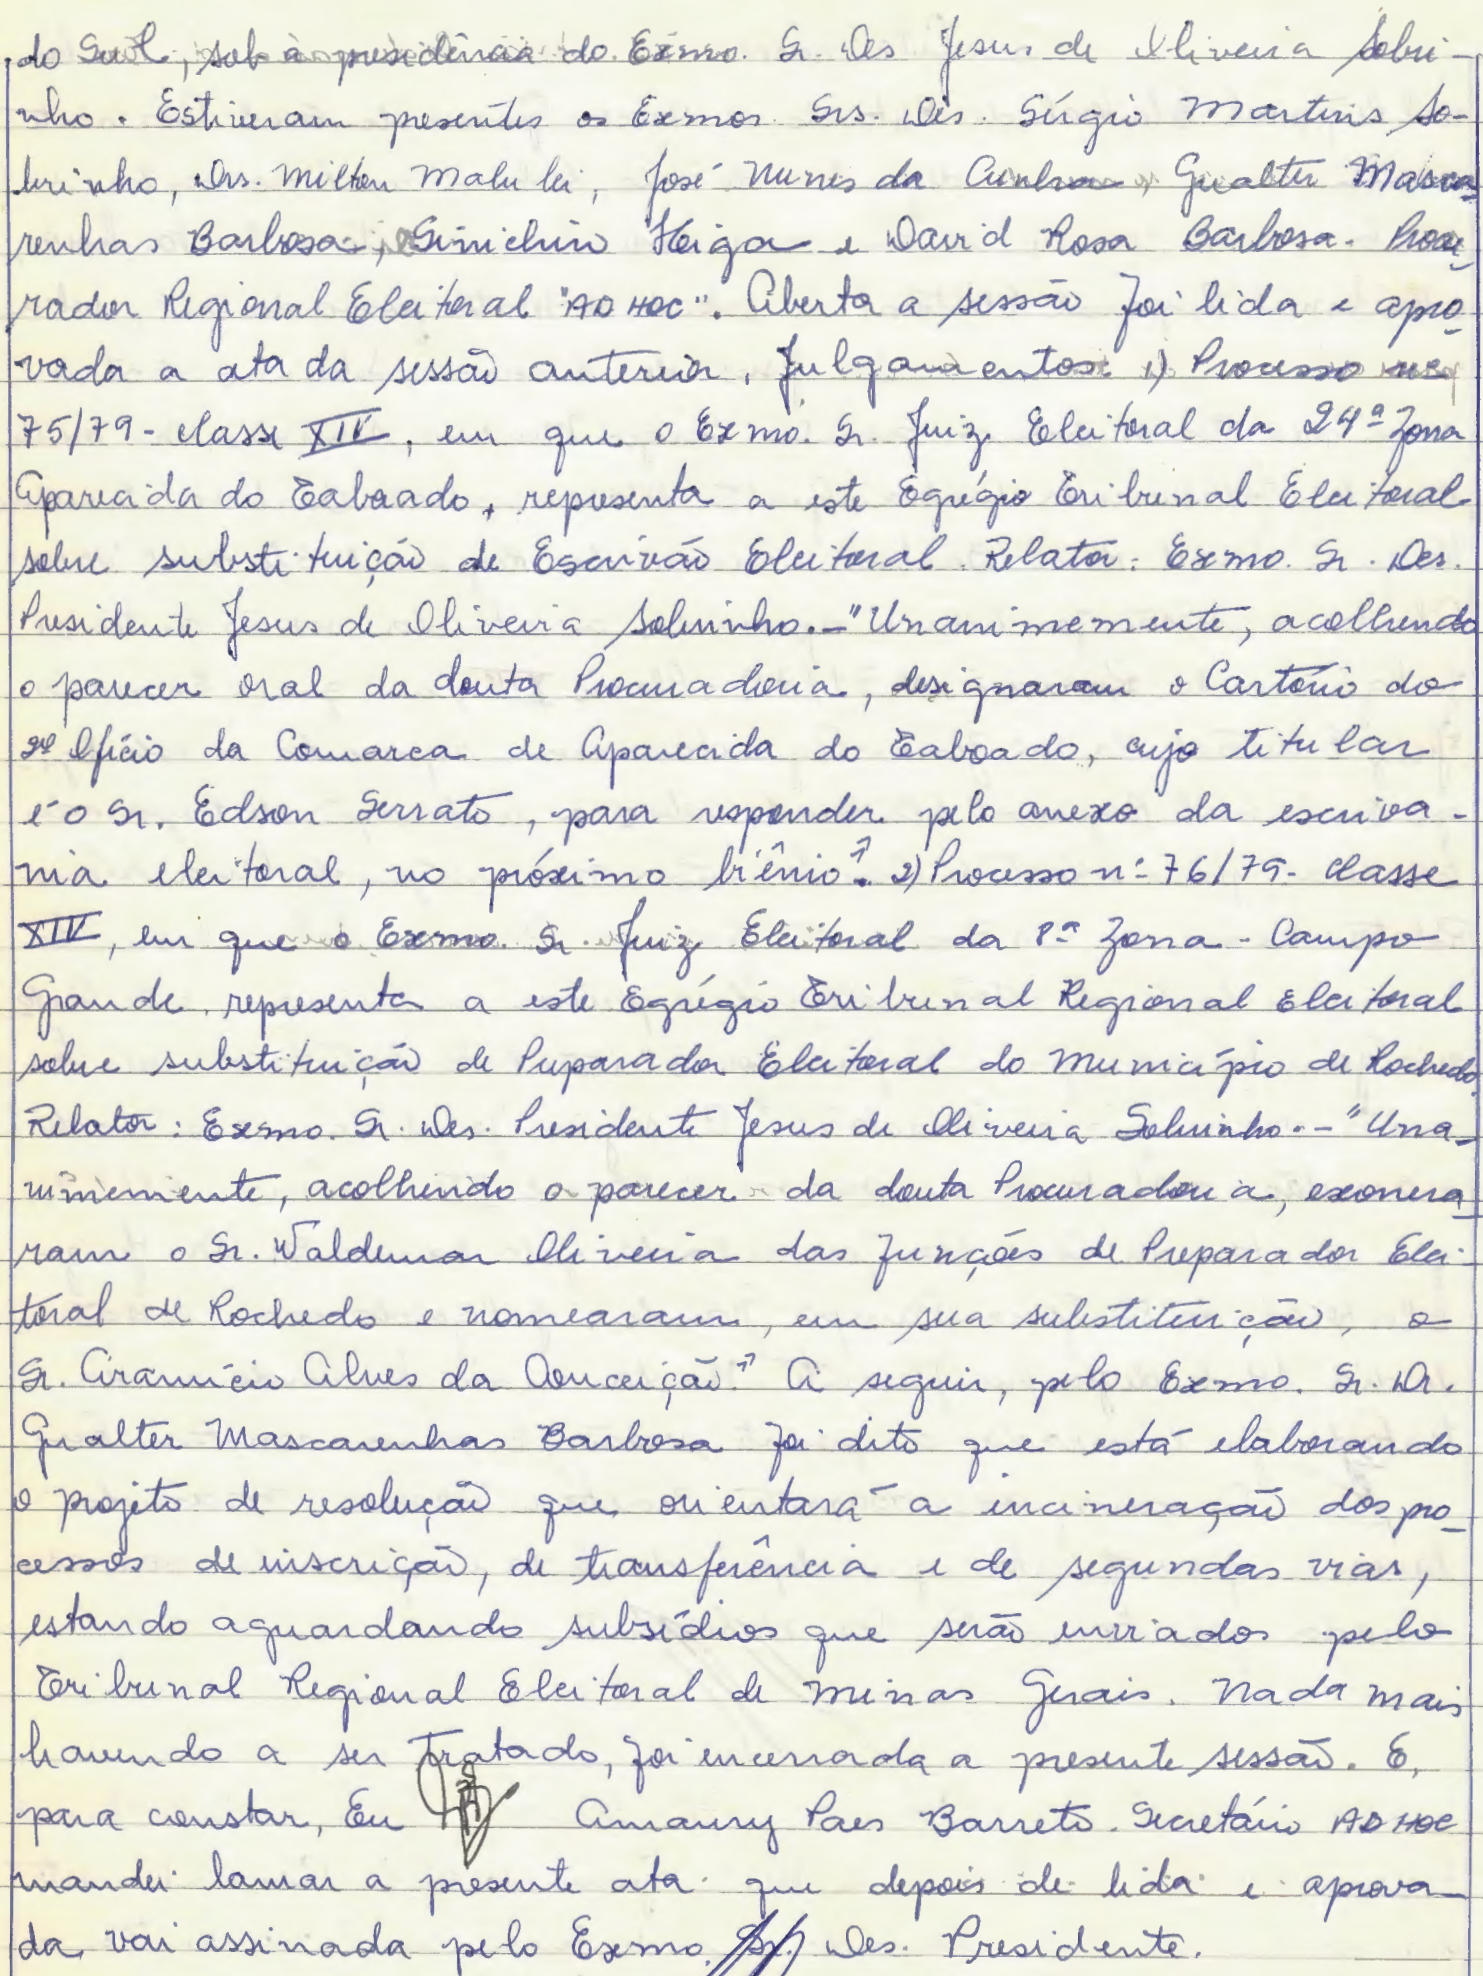 do Sul, sob a presidência do Exmo. Sr. Des Jesus de Oliveira Sobri-
nho. Estiveram presentes os Exmos. Srs. Des. Sérgio Martins So-
brinho, Drs. Milton Malulei, José Nunes da Cunha, Gualter Masca
renhas Barbosa, Sinichiro Higa e David Rosa Barbosa. Procu
rador Regional Eleitoral "AD HOC". Aberta a sessão foi lida e apro
vada a ata da sessão anterior. Julgamentos: 1) Processo nº
75/79 - classe XIV, em que o Exmo. Sr. Juiz Eleitoral da 24ª Zona
Aparecida do Taboado, representa a este Egrégio Tribunal Eleitoral
sobre substituição de Escrivão Eleitoral. Relator: Exmo. Sr. Des.
Presidente Jesus de Oliveira Sobrinho. - "Unanimemente, acolhendo
o parecer oral da douta Procuradoria, designaram o Cartório do
2º Ofício da Comarca de Aparecida do Taboado, cujo titular
é o Sr. Edson Serrato, para responder pelo anexo da escriva-
nia eleitoral, no próximo biênio". 2) Processo nº 76/79 - classe
XIV, em que o Exmo. Sr. Juiz Eleitoral da 8ª Zona - Campo
Grande, representa a este Egrégio Tribunal Regional Eleitoral
sobre substituição de Preparador Eleitoral do Município de Rochedo.
Relator: Exmo. Sr. Des. Presidente Jesus de Oliveira Sobrinho. - "Una-
nimemente, acolhendo o parecer da douta Procuradoria, exonera
ram o Sr. Waldemar Oliveira das funções de Preparador Elei-
toral de Rochedo e nomearam, em sua substituição, o
Sr. Aramício Alves da Conceição". A seguir, pelo Exmo. Sr. Dr.
Gualter Mascarenhas Barbosa foi dito que está elaborando
o projeto de resolução que orientará a incineração dos pro-
cessos de inscrição, de transferência e de segundas vias,
estando aguardando subsídios que serão enviados pelo
Tribunal Regional Eleitoral de Minas Gerais. Nada mais
havendo a ser tratado, foi encerrada a presente sessão. E,
para constar, Eu Amaury Paes Barreto. Secretário AD HOC
mandei lavrar a presente ata que depois de lida e aprova-
da vai assinada pelo Exmo. Sr. Des. Presidente.